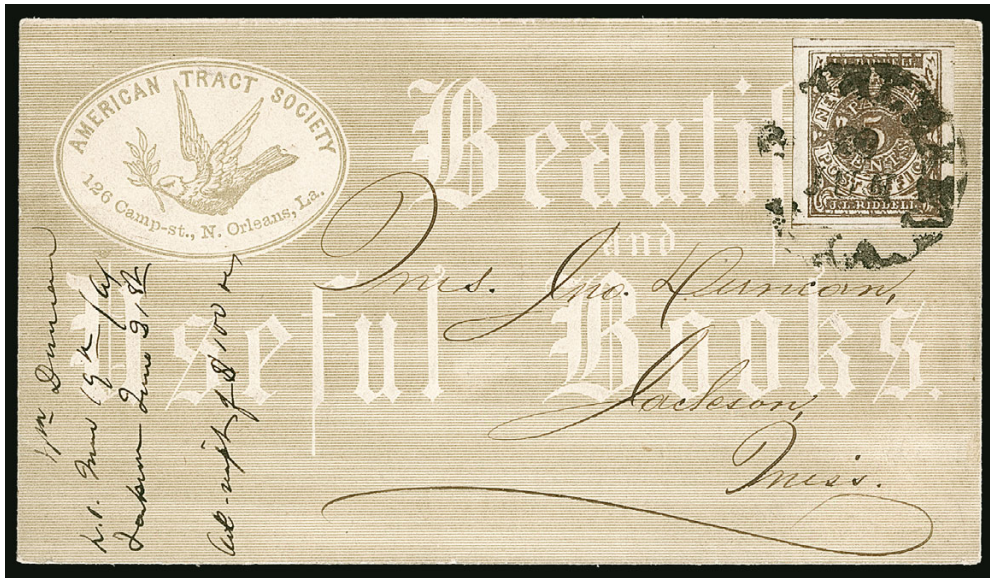 AMERICAN TRACT SOCIETY
126 Camp-st., N. Orleans, La.
Beautif
and
Useful Books.
5
CENTS
POST OFFICE
J.L. RIDDELL
Mrs. Jno. Duncan,
Jackson,
Miss.
Wm Duncan
June 19th
Jackson June 21st
$100